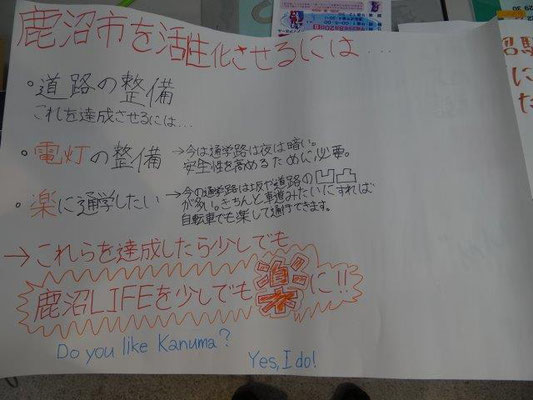 鹿沼市を活性化させるには…
・道路の整備
これを達成させるには…
・電灯の整備
→今は通学路は夜は暗い。
安全性を高めるために必要。
・楽に通学したい
→今の通学路は坂や道路の凹凸
が多い。きちんと車道みたいにすれば
自転車でも楽して通けできます。
→これらを達成したら少しでも
鹿沼LIFEを少しでも楽に!!
Do you like Kanuma?
Yes, I do!